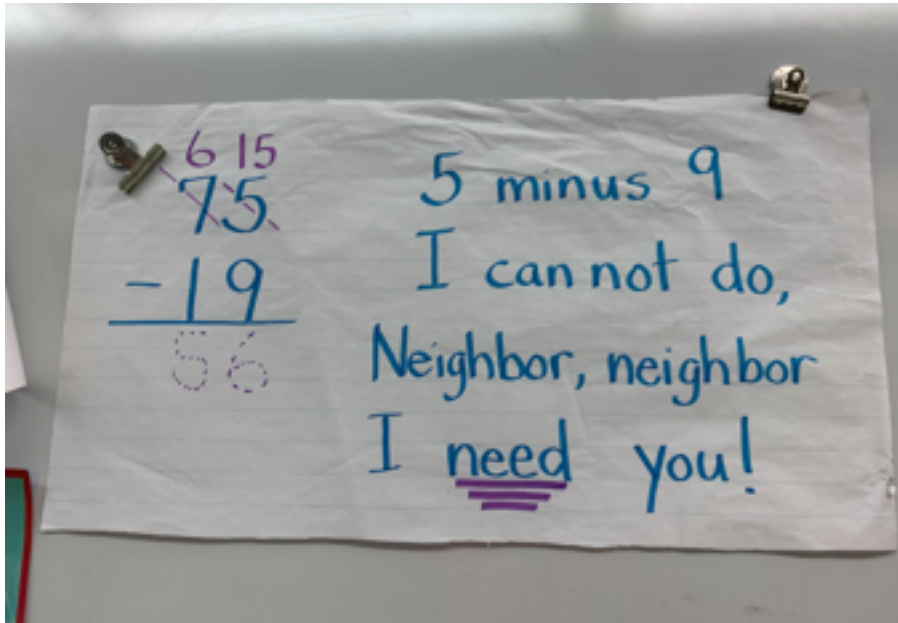 6 15
75
- 19
56
5 minus 9
I can not do,
Neighbor, neighbor
I need you!